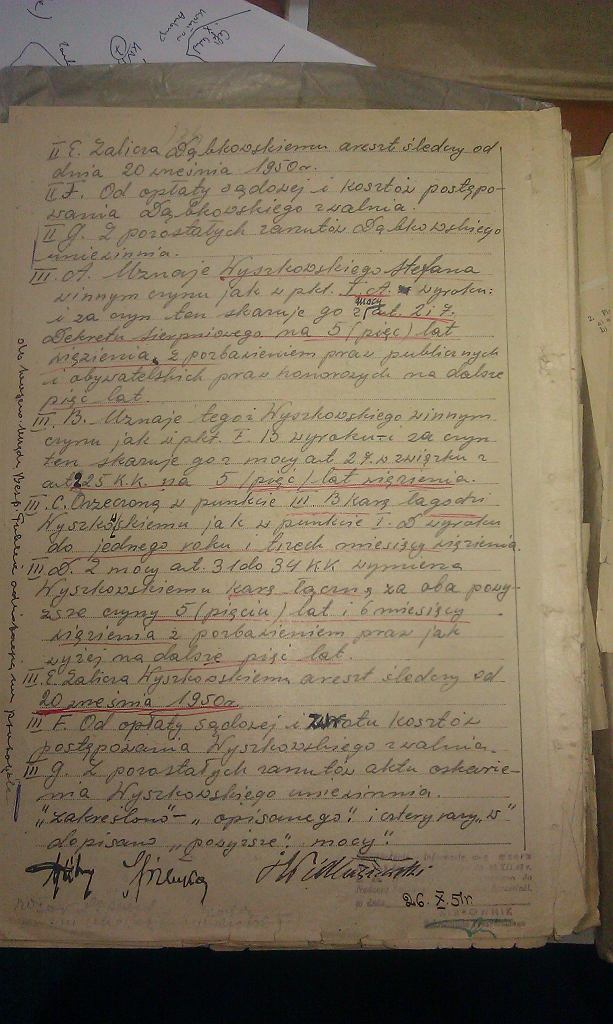 II E. Zalicza Dąbkowskiemu areszt śledczy od
dnia 20 września 1950r.
II F. Od opłaty sądowej i kosztów postępo-
wania Dąbkowskiego zwalnia.
II G. Z pozostałych zarzutów Dąbkowskiego
uniewinnia.
III. A. Uznaje Wyszkowskiego Stefana
winnym czynu jak w pkt. I. A. wyroku:
i za czyn ten skazuje go z mocy art. 2 i 7.
Dekretu sierpniowego na 5 (pięć) lat
więzienia, z pozbawieniem praw publicznych
i obywatelskich praw honorowych na dalsze
pięć lat.
III. B. Uznaje tegoż Wyszkowskiego winnym
czynu jak w pkt. I. B wyroku i za czyn
ten skazuje go z mocy art. 27. w związku z
art 225 K.K. na 5 (pięć) lat więzienia.
III. C. Orzeczoną w punkcie III B karę łagodzi
Wyszkowskiemu jak w punkcie I. D wyroku
do jednego roku i trzech miesięcy więzienia.
III D. Z mocy art. 31 do 34 KK wymierza
Wyszkowskiemu karę łączną za oba powy-
ższe czyny 5 (pięciu) lat i 6 miesięcy
więzienia z pozbawieniem praw jak
wyżej na dalsze pięć lat.
III. E Zalicza Wyszkowskiemu areszt śledczy od
20 września 1950r.
III F. Od opłaty sądowej i kosztów
postępowania Wyszkowskiego zwalnia.
III G. Z pozostałych zarzutów aktu oskarże-
nia Wyszkowskiego uniewinnia.
"zakreślono" - "opisanego" i cztery razy "w"
dopisano "powyższe" "mocy".
26. X. 51r.